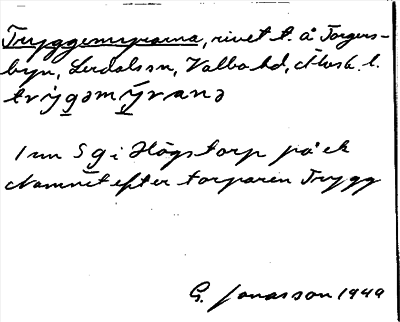 Tryggemyrarna, rivet t. å Torgers-
byn, Lerdals sn, Valbo hd, Älvsb. l.
trỳgəmy̆ranə
1 km S g i Högstorp på ek
Namnet efter torparen Trygg
G. Jonasson 1949